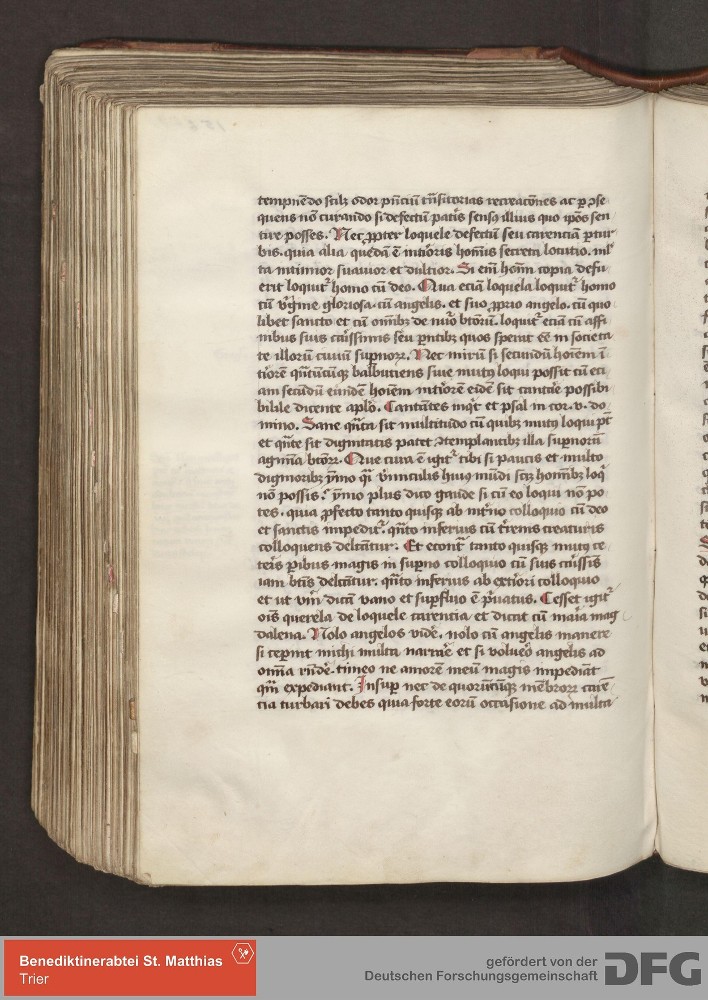 tempnēdo scilꝫ odor p̄nciū trāsitorias recreacōnes ac ꝑ ꝯse
quens nō curando si defectū patīs sensꝯ illius quo ip̄os sen
tire posses. Nec ꝓpter loquele defectū seu carenciā ꝑtur
bis. quia alia quedā ē int̄ioris homīs secreta locutio. ml̄
ta intimior suauior et dulcior. Si em̄ homī copia defu
erit loquit᷑ homo cū deo. Qua eciā loquela loquit᷑ homo
cū v̓gīne gloriosa. cū angelis. et suo ꝓprio angelo. cū quo
libet sancto et cū om̄ibꝫ de nūo btōrū. loquit᷑ eciā cū affi
nibus suis cār̄issimis seu ꝑntibꝫ quos sperat eē in societa
te illorū ciuiū supernoꝝ. Nec mirū si secundū hoīem ī
tiōrē quātūcūqꝫ balbutiens siue mutꝯ loqui possit cū eci
am secūdū eūndē hoīem int̄iorē eidē sit cantāe possibi
bilile dicente ap̄lo. Cantātes inqt et psal in cor. v. do
mino. Sane quāta sit multitudo cū quibꝫ mutꝯ loqui pt̄
et quāte sit dignitatis patet ꝯtemplantibꝫ illa supernorū
agmīa btōꝝ. Que cura ē igit᷑ tibi si paucis et multo
dignioribꝫ ymo qi vinculis huiꝯ mūdi scꝫ homībꝫ loq̄
nō possis? ymo plus dico gaude si cū eo loqui nō po
tes. quia ꝓfecto tanto quisqꝫ ab int̄no colloquio cū deo
et sanctis impedit᷑. quāto inferius cū t̄renis creaturis
colloquens delcāt᷑ur. Et econt̄ tanto quisqꝫ mutꝯ ce
teīs ꝑibus magis in sup̄no colloquio cū suis cār̄issīs
iam btīs delcāt᷑ur. quāto inferius ab ext̄iori colloquio
et ut vm̄ dicā vano et suꝑfluo ē p̄uatus. Cesset igit᷑
oīs querela de loquele carencia et dicat cū maīa mag
dalena. Nolo angelos vidē. nolo cū angelis manere
si ceperint michi multa narrāe et si voluēo angelis ad
om̄ia rn̄dē. timeo ne amorē meū magis impediāt
qm̄ expediant. Insuꝑ nec de quorūcūqꝫ mēbroꝝ carē
cia turbari debes quia forte eorū occasione ad multa
Benediktinerabtei St. Matthias
Trier
gefördert von der
Deutschen Forschungsgemeinschaft
DFG